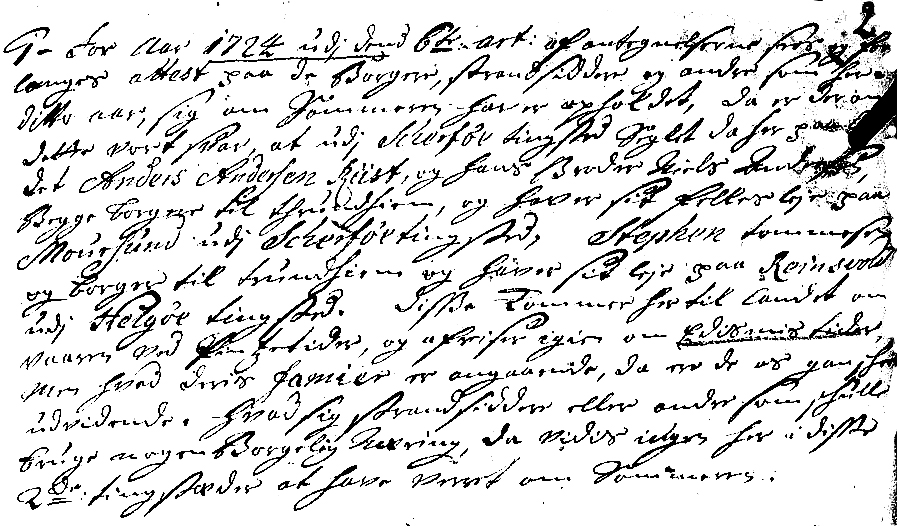 2
For Aar 1724 udj dend 6te art: af antegnelserne sees og for
langes attest paa de Borgere, strandsiddere og andre som her
ditto aar, sig om Sommeren har er opholdet, da er der om
dette vort svar, at udj Scherføe tingsted Siglt da her paa
det Anders Andersen Rüst, og hans Broder Niels Andersen,
Begge borgere til thrundhiem, og haver sit felles leje paa
Moursund udj Scherføe tingsted, Stephen tommesen
og borger til trundhiem og haver sit leje paa Reinsvold
udj Helgøe tingsted. Disse kommer her til landet om
vaaren ved Pingetider, og afreiser igien om Michelsmis tider,
men hvad deris Famier er angaaende, da ere de os gandsche
udvidende. hvad sig strandsiddere eller andre som schulle
bruge nogen Borgelig Næring, da vidis ingen her i disse
2de tingstæder at have været om Sommeren.